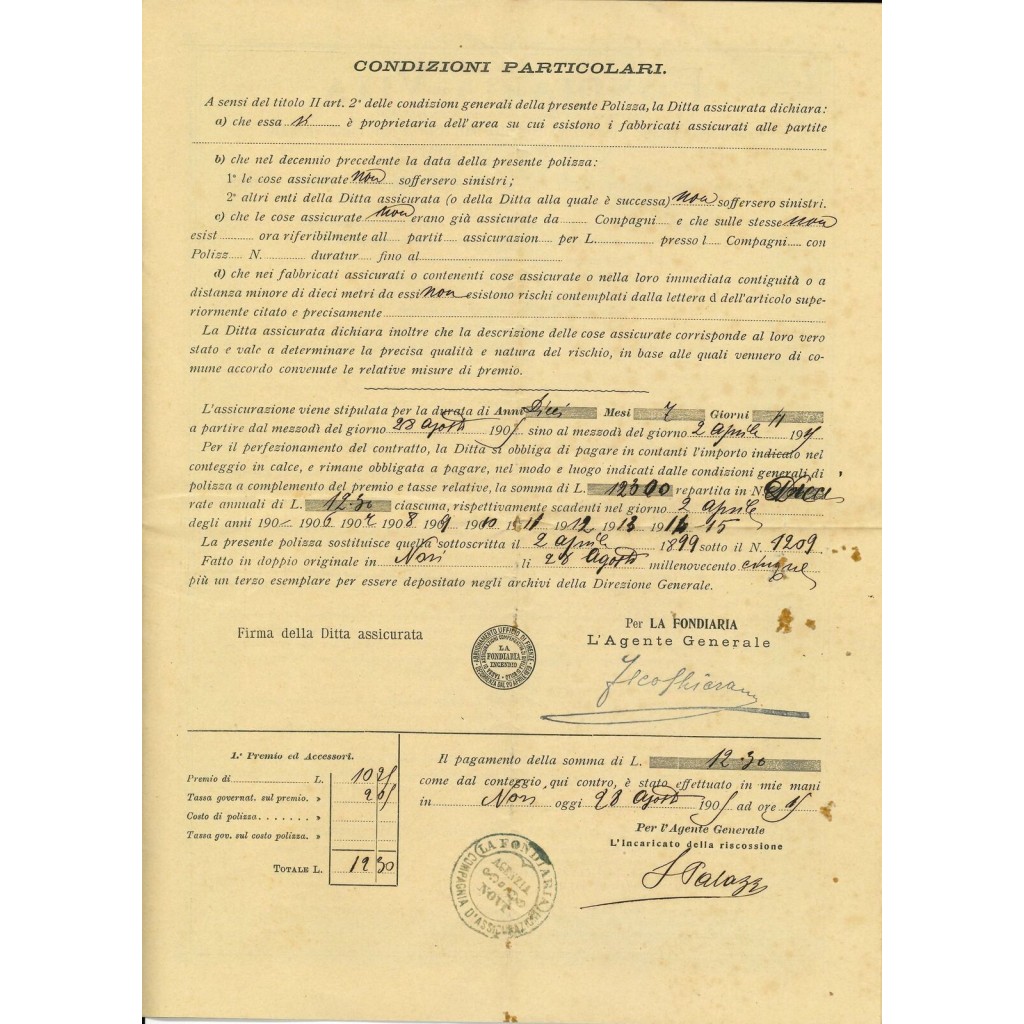 CONDIZIONI PARTICOLARI.
A sensi del titolo II art. 2° delle condizioni generali della presente Polizza, la Ditta assicurata dichiara:
a) che essa è proprietaria dell'area su cui esistono i fabbricati assicurati alle partite
b) che nel decennio precedente la data della presente polizza:
1° le cose assicurate non soffersero sinistri;
2° altri enti della Ditta assicurata (o della Ditta alla quale è successa) non soffersero sinistri.
c) che le cose assicurate non erano già assicurate da Compagni e che sulle stesse non
esist ora riferibilmente all partit assicurazion per L. presso l Compagni con
Polizz N. duratur fino al
d) che nei fabbricati assicurati o contenenti cose assicurate o nella loro immediata contiguità o a
distanza minore di dieci metri da essi non esistono rischi contemplati dalla lettera d dell'articolo supe-
riormente citato e precisamente
La Ditta assicurata dichiara inoltre che la descrizione delle cose assicurate corrisponde al loro vero
stato e vale a determinare la precisa qualità e natura del rischio, in base alle quali vennero di co-
mune accordo convenute le relative misure di premio.
L'assicurazione viene stipulata per la durata di Anni Dieci Mesi 7 Giorni
a partire dal mezzodì del giorno 28 agosto 1905 sino al mezzodì del giorno 2 aprile
Per il perfezionamento del contratto, la Ditta si obbliga di pagare in contanti l'importo indicato nel
conteggio in calce, e rimane obbligata a pagare, nel modo e luogo indicati dalle condizioni generali di
polizza a complemento del premio e tasse relative, la somma di L. 12300 repartita in N. Dieci
rate annuali di L. 12.30 ciascuna, rispettivamente scadenti nel giorno 2 aprile
degli anni 190 1906 1907 1908 1909 1910 1911 1912 1913 1914 - 15
La presente polizza sostituisce quella sottoscritta il 2 aprile 1899 sotto il N. 1209
Fatto in doppio originale in li 28 Agosto millenovecento cinque
più un terzo esemplare per essere depositato negli archivi della Direzione Generale.
Firma della Ditta assicurata
LA
FONDIARIA
INCENDIO
Per LA FONDIARIA
L'Agente Generale
1.° Premio ed Accessori.
Premio di L. 1025
Tassa governat. sul premio. » 205
Costo di polizza »
Tassa gov. sul costo polizza. »
TOTALE L. 12 30
Il pagamento della somma di L. 12.30
come dal conteggio qui contro, è stato effettuato in mie mani
in oggi 28 Agosto 1905 ad ore
Per l'Agente Generale
L'Incaricato della riscossione
LA FONDIARIA
AGENZIA
COMPAGNIA D'ASSICURAZIONI